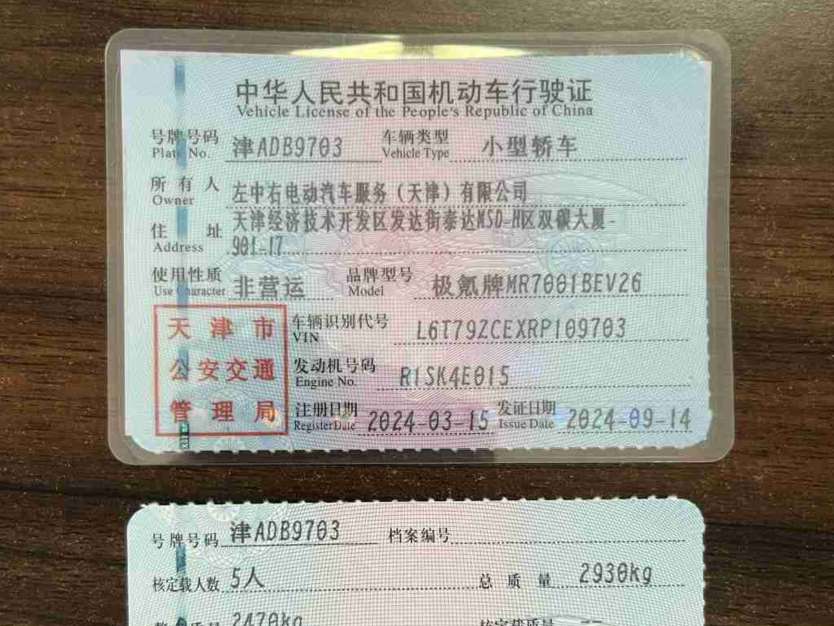 中华人民共和国机动车行驶证
Vehicle License of the People's Republic of China
号牌号码 津ADB9703 车辆类型 小型轿车
Plate No. Vehicle Type
所有人 左中右电动汽车服务（天津）有限公司
Owner
住址 天津经济技术开发区发达街泰达MSD-H区双碳大厦-
Address 901-17
使用性质 非营运 品牌型号 极氪牌MR7001BEV26
Use Character Model
天津市
公安交通
管理局
车辆识别代号 L6T79ZCEXRP109703
VIN
发动机号码 R1SK4E015
Engine No.
注册日期 2024-03-15 发证日期 2024-09-14
Register Date Issue Date
号牌号码 津ADB9703 档案编号
核定载人数 5人 总质量 2930kg
2470kg